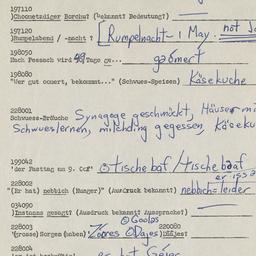 197110
)Chometzdiger Borchu? (Bekannt? Bedeutung?)
197120
)Rumpelabend / -nacht ? [Rumpelnacht - 1 May. not
198050
Nach Pessach wird 49 Tage ge... geômert
198080
"Wer gut oumert, bekommt..." (Schwues-Speisen) Käsekuche
228001
Schwuess-Bräuche Synagoge geschmückt, Häuser
Schwueslernen, milchding gegessen, Käseku
199042
'der Fasttag am 9. Oof' tische baf / tische baaf
228002
"(Er hat) nebbich (Hunger)" (Ausdruck bekannt?) nebbich=leider
034090
)Instanss gesogt? (Ausdruck bekannt? Aussprache?)
228003 220080
'(grosse) Sorgen (haben)
228004